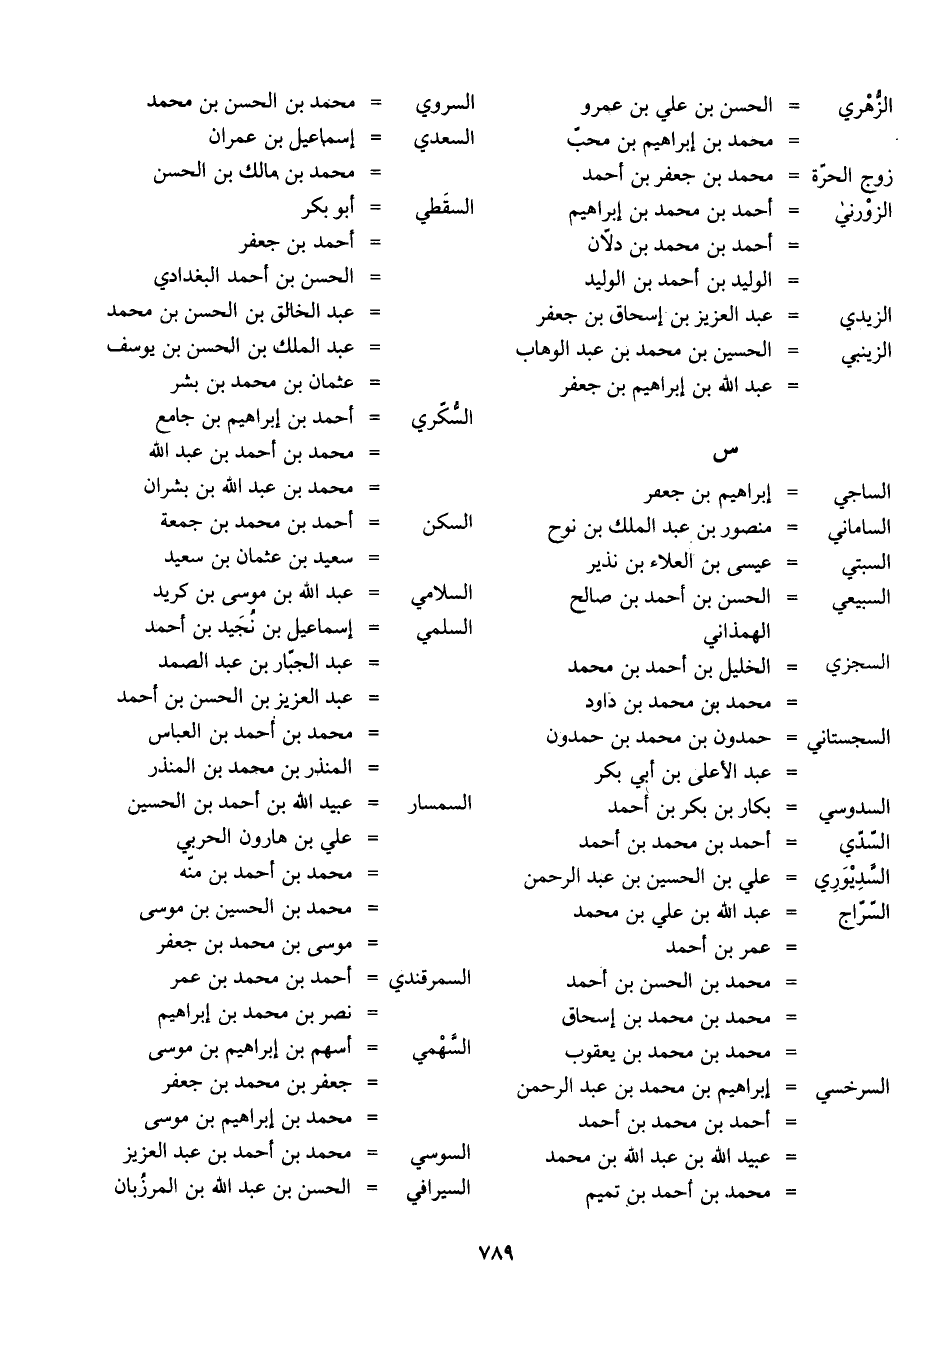 الزُّهْري = الحسن بن علي بن عمرو
= محمد بن إبراهيم بن محبّ
زوج الحرّة = محمد بن جعفر بن أحمد
الزوْرني = أحمد بن محمد بن إبراهيم
= أحمد بن محمد بن دلّان
= الوليد بن أحمد بن الوليد
الزيدي = عبد العزيز بن إسحاق بن جعفر
الزينبي = الحسين بن محمد بن عبد الوهاب
= عبد الله بن إبراهيم بن جعفر
س
الساجي = إبراهيم بن جعفر
الساماني = منصور بن عبد الملك بن نوح
السبتي = عيسى بن العلاء بن نذير
السبيعي = الحسن بن أحمد بن صالح
الهمذاني
السجزي = الخليل بن أحمد بن محمد
= محمد بن محمد بن داود
السجستاني = حمدون بن محمد بن حمدون
= عبد الأعلى بن أبي بكر
السدوسي = بكار بن بكر بن أحمد
السّدّي = أحمد بن محمد بن أحمد
السَّدِيْوَرِي = علي بن الحسين بن عبد الرحمن
السّرّاج = عبد الله بن علي بن محمد
= عمر بن أحمد
= محمد بن الحسن بن أحمد
= محمد بن محمد بن إسحاق
= محمد بن محمد بن يعقوب
السرخسي = إبراهيم بن محمد بن عبد الرحمن
= أحمد بن محمد بن أحمد
= عبيد الله بن عبد الله بن محمد
= محمد بن أحمد بن تميم
السروي = محمد بن الحسن بن محمد
السعدي = إسماعيل بن عمران
= محمد بن مالك بن الحسن
السقَطي = أبو بكر
= أحمد بن جعفر
= الحسن بن أحمد البغدادي
= عبد الخالق بن الحسن بن محمد
= عبد الملك بن الحسن بن يوسف
= عثمان بن محمد بن بشر
السُّكّري = أحمد بن إبراهيم بن جامع
= محمد بن أحمد بن عبد الله
= محمد بن عبد الله بن بشران
السكن = أحمد بن محمد بن جمعة
= سعيد بن عثمان بن سعيد
السلامي = عبد الله بن موسى بن كريد
السلمي = إسماعيل بن نُجَيد بن أحمد
= عبد الجبّار بن عبد الصمد
= عبد العزيز بن الحسن بن أحمد
= محمد بن أحمد بن العباس
= المنذر بن محمد بن المنذر
السمسار = عبيد الله بن أحمد بن الحسين
= علي بن هارون الحربي
= محمد بن أحمد بن متّه
= محمد بن الحسين بن موسى
= موسى بن محمد بن جعفر
السمرقندي = أحمد بن محمد بن عمر
= نصر بن محمد بن إبراهيم
السَّهْمي = أسهم بن إبراهيم بن موسى
= جعفر بن محمد بن جعفر
= محمد بن إبراهيم بن موسى
السوسي = محمد بن أحمد بن عبد العزيز
السيرافي = الحسن بن عبد الله بن المرزُبان
٧٨٩